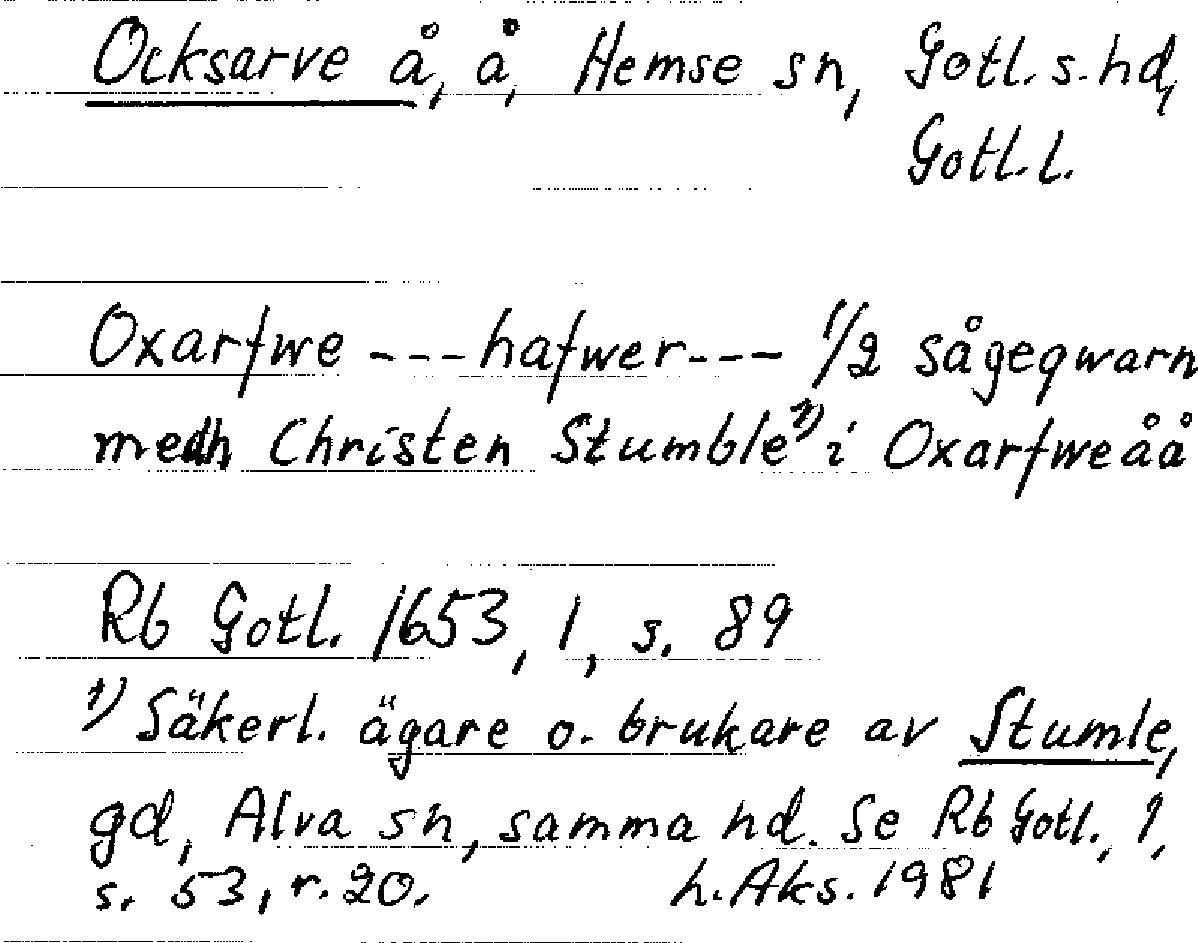 Ocksarve å, å, Hemse sn, Gotl. s. hd,
Gotl. l.
Oxarfwe --- hafwer --- 1/2 sågeqwarn
medh Christen Stumble 1) i Oxarfweåå
Rb Gotl. 1653, 1, s. 89
1) Säkerl. ägare o. brukare av Stumle,
gd, Alva sn, samma hd. Se Rb Gotl., 1,
s. 53, r. 20. h. Aks. 1981